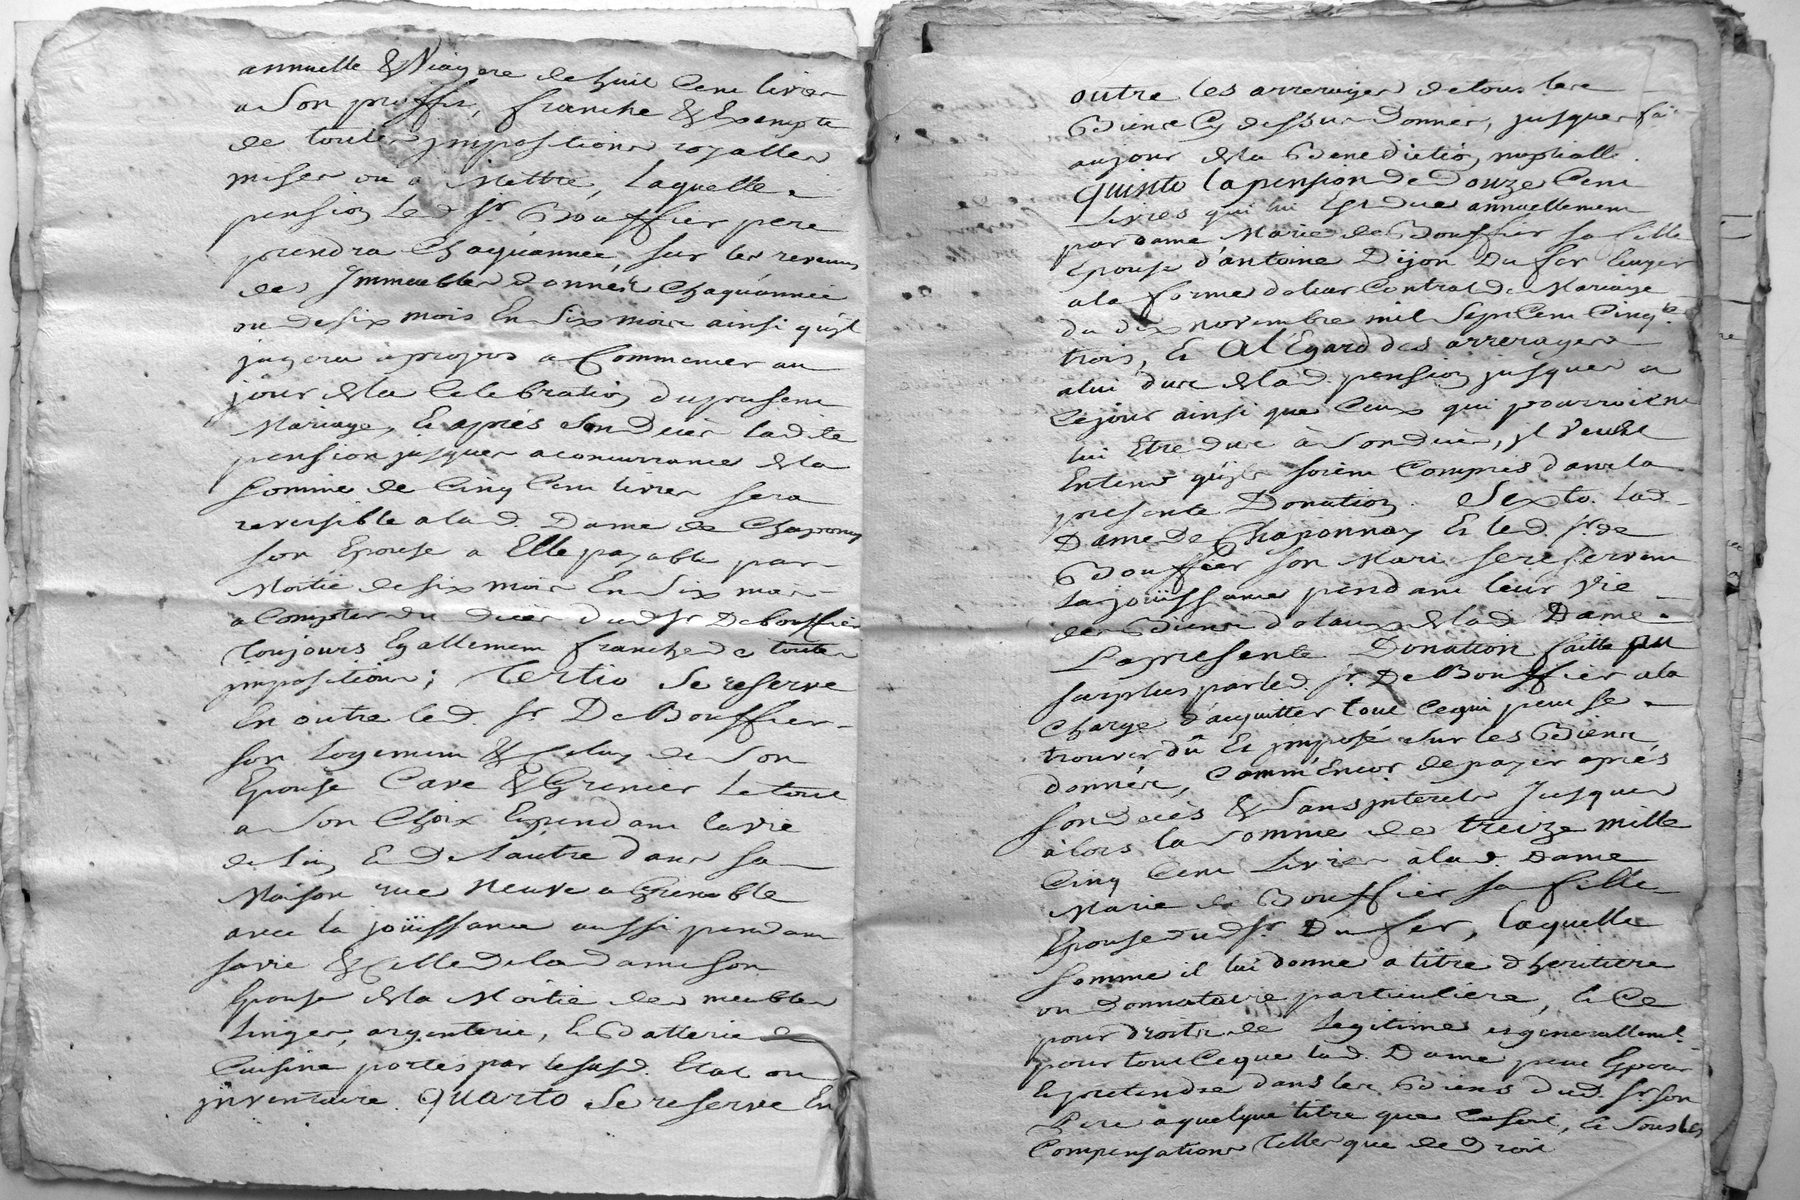 annuelle & Viagere de huit Cent livres
a son proffit, franche & Exempte
de toutes jmpositions royalles
mises ou a Mettre, laquelle
pension led. Sr. Bouffier pere
prendra Chaqu'année sur les revenus
des Jmmeubles donnés Chaqu'année
ou de six mois En Six mois ainsi qu'jl
jugera a propos a Commencer au
jour de la Celebration du present
Mariage, Et aprés son Decés ladite
pension jusques a concurrance de la
somme de Cinq Cent livres sera
reversible a lad. Dame de Chaponay
son Epouse a Elle payable par
Moitié de six mois En Six mois
a Compter du decés dud. Sr. De bouffier
toujours Egallement franche de toutes
jmpositions; Tertio Se reserve
En outre led. Sr. De Bouffier
son Logement & Celuy de Son
Epouse Cave & Grenier Le tout
a Son Choix Et pendant la vie
de l'un Et De l'autre dans sa
Maison rue Neuve a Grenoble
avec la joüissance aussi pendant
sa vie & Celle de lad. dame son
Epouse de la Moitié des meubles
Linges, argenterie, Et Batterie de
Cuisine portés par le susd. Etat ou
jnventaire. Quarto Se reserve En
outre les arrerages de tous les
Biens Cy dessus Donnés, jusques
au jour de la Benediction nuptialle.
Quinto la pension de Douze Cent
Livres qui lui Est due annuellement
par dame Marie de Bouffier sa fille
Epouse d'antoine Dijon Du fer
a la forme de leur Contrat de Mariage
du dix novembre mil Sept Cent Cinqte.
trois, Et A l'Egard des arrerages
a lui dus de lad. pension jusques a
Ce jour ainsi que Ceux qui pourroient
lui Etre dus à Son decés, jl Veut Et
Entend qu'jls soient Compris dans la
presente Donation. Sexto. Lad.
Dame De Chaponnay Et led. Sr. de
Bouffier son Mari se reservent
La joüissance pendant leur vie
des Biens dotaux de lad. Dame.
La presente Donation faitte au
surplus par led. Sr. De Bouffier a la
Charge d'acquitter tout Ce qui peut se
trouver dû Et jmposé sur les Biens
donnés, Comm'Encor de payer aprés
son decés & Sans jnterets Jusques
à lors la somme de treize mille
Cinq Cent Livres à lad. Dame
Marie de Bouffier sa fille
Epouse dud. Sr. Du fer, laquelle
somme il lui donne a titre d'heritiere
ou donnataire particuliere, Et Ce
pour droits de Legitime et generallemt.
pour tout Ce que lad. Dame peut Esperer
Et pretendre dans les Biens dud. Sr. son
Pere a quelque titre que Ce soit, Et Sous les
Compensations telles que de Droit